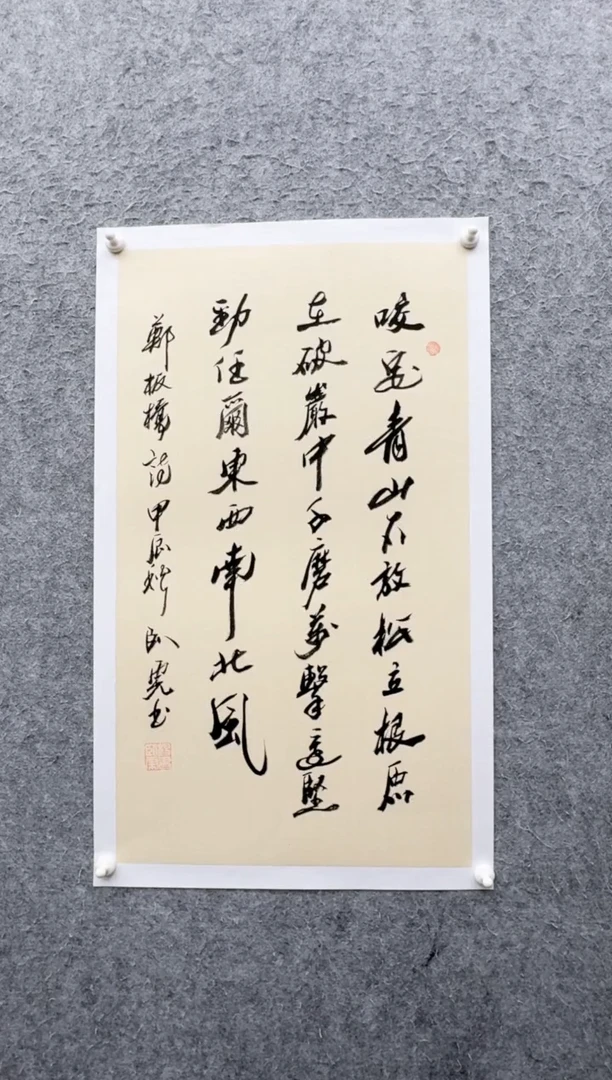 咬定青山不放松立根原
在破巖中千磨萬擊還堅
勁任爾東西南北風
鄭板橋詩甲辰書